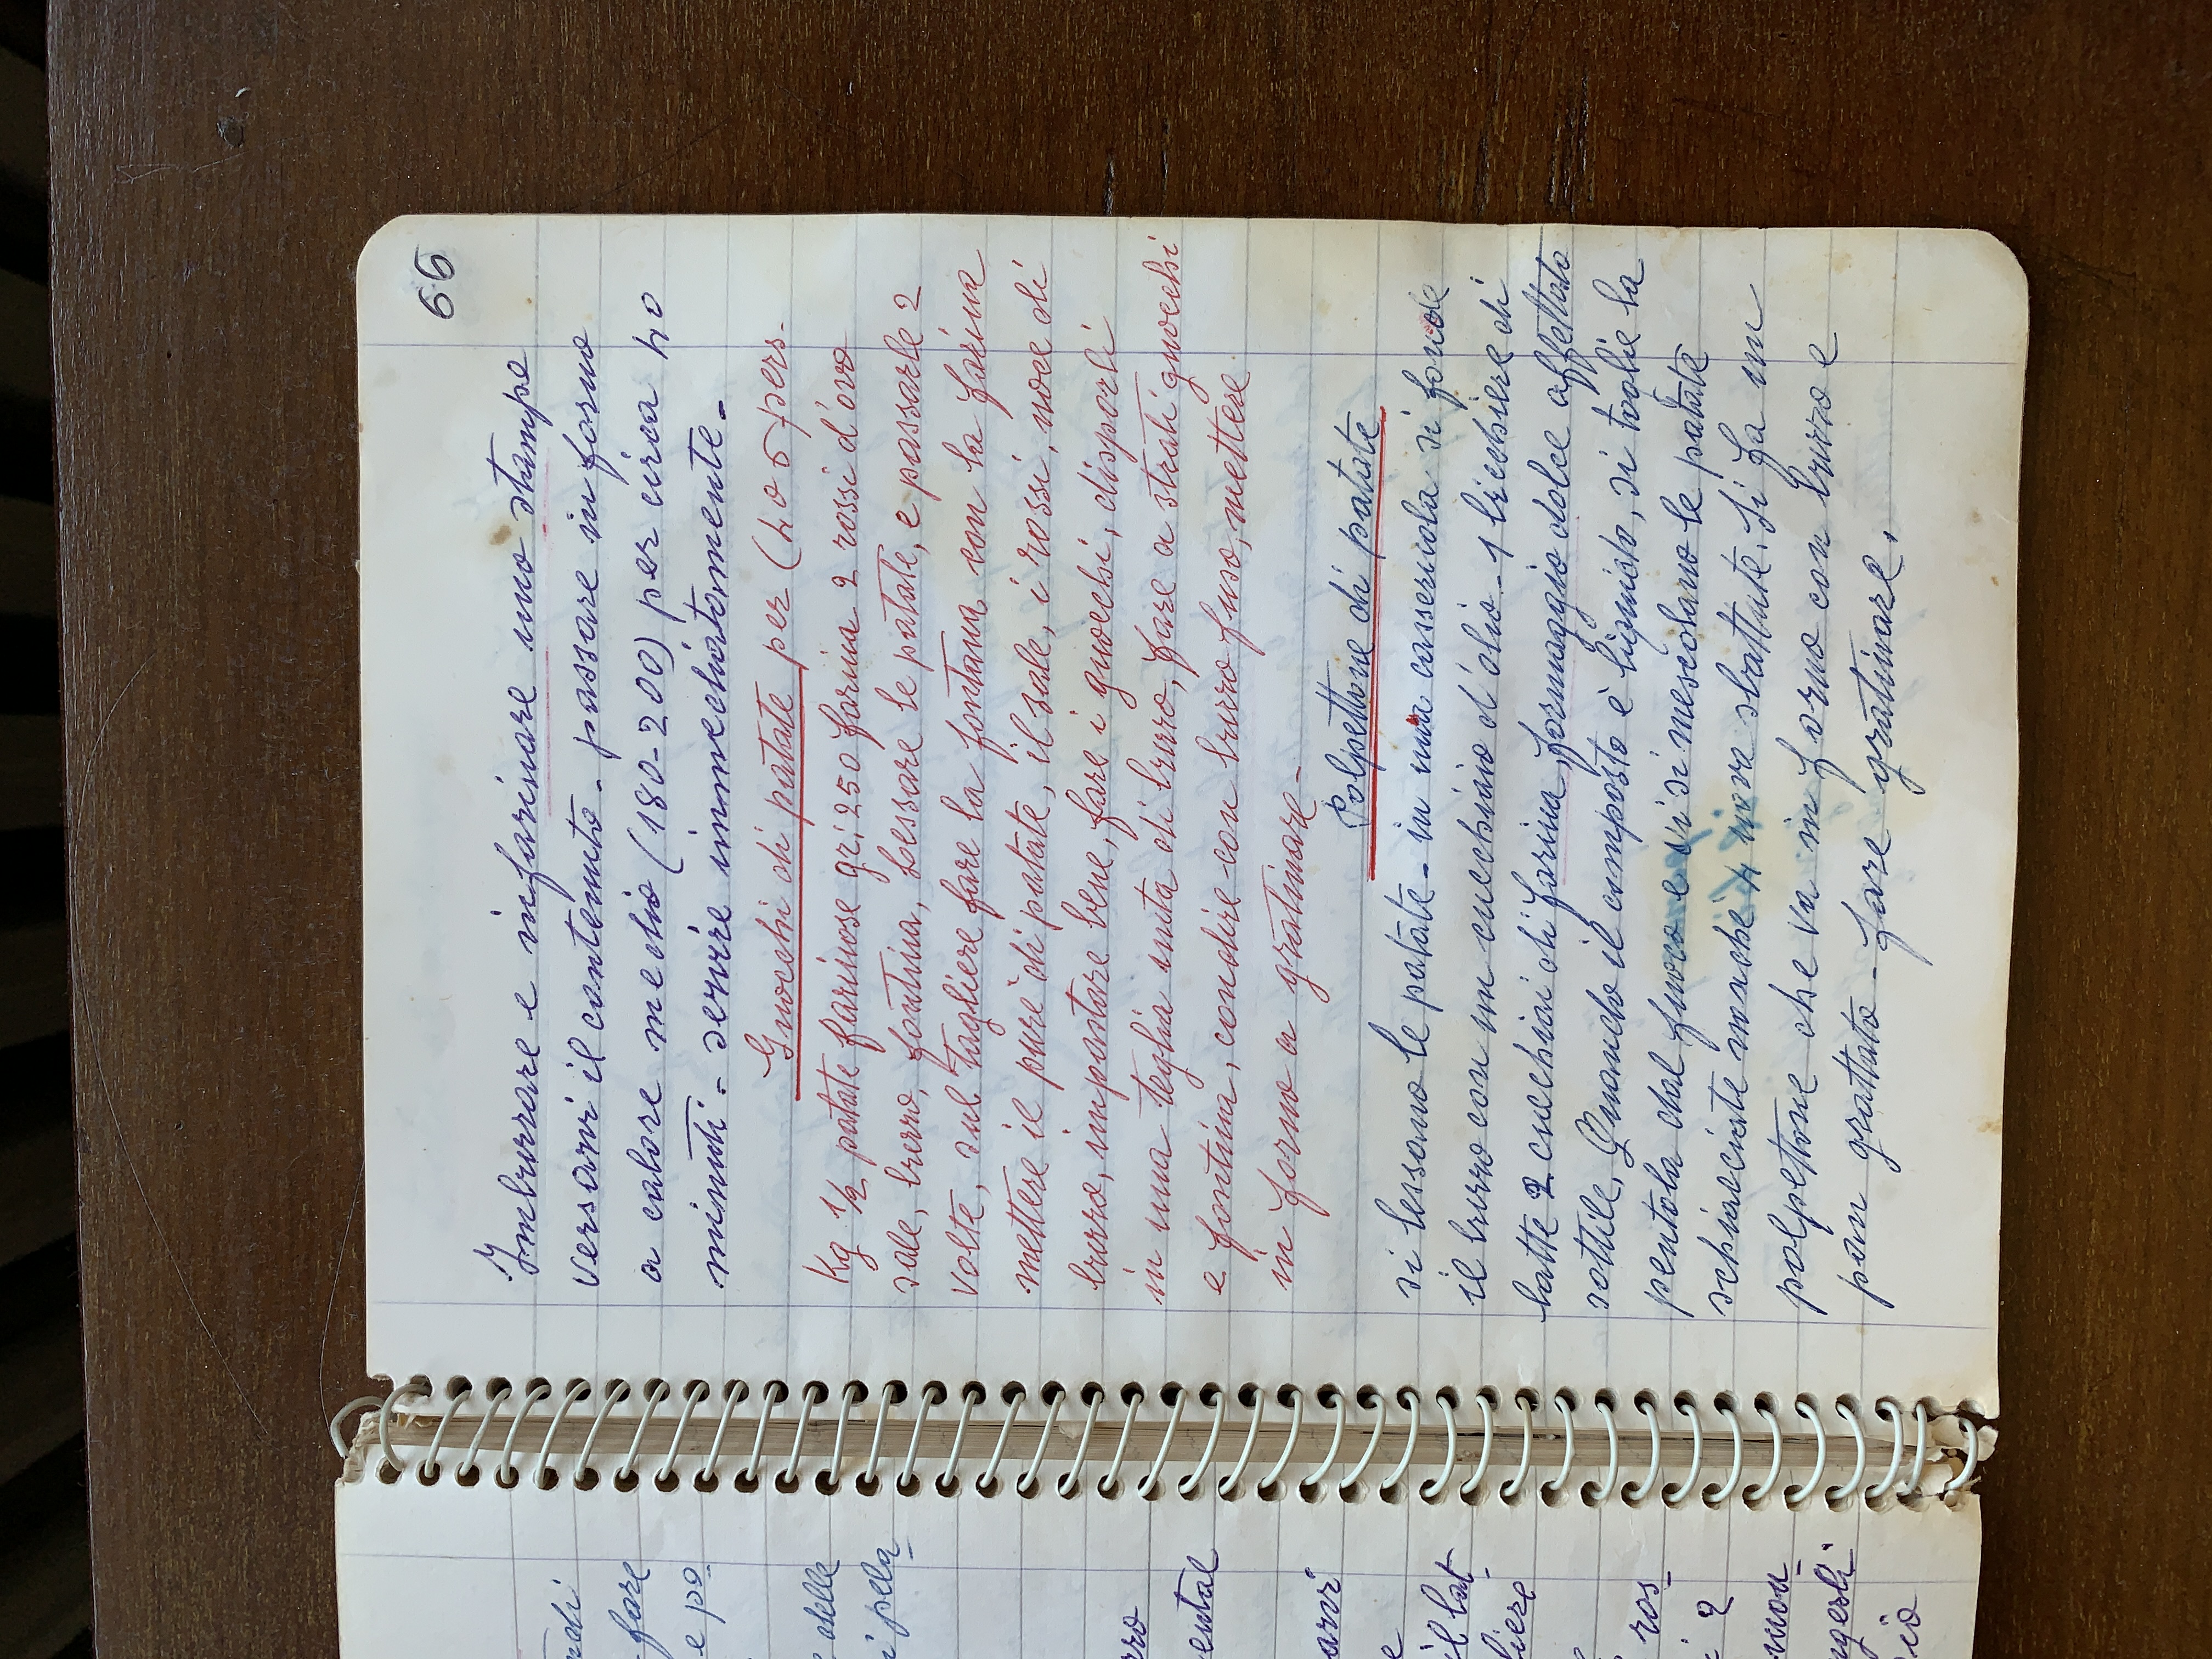 ndi
fare
e po
delle
i pela
rro
ental
arvi
e
il lat
liere
ros
i 2
mon
ngerli
io
66
Imburrare e infarinare uno stampo
versarvi il contenuto - passare in forno
a calore medio (180-200) per circa 40
minuti - servire immediatamente -
Gnocchi di patate per (4 o 5 pers.
Kg 1/2 patate farinose gr: 250 farina 2 rossi d'ovo
sale, burro, fontina, Lessare le patate, e passarle 2
volte, sul tagliere fare la fontana con la farina
mettere il purè di patate, il sale, i rossi, noce di
burro, impastare bene, fare i gnocchi, disporli
in una teglia unta di burro, fare a strati gnocchi
e fontina, condire con burro fuso, mettere
in forno a gratinare -
Polpettone di patate
si lessano le patate - in una casseruola si fonde
il burro con un cucchiaio d'olio - 1 bicchiere di
latte 2 cucchiai di farina, formaggio dolce affettato
sottile. Quando il composto è liquido, si toglie la
pentola dal fuoco e vi si mescolano le patate
schiacciate nonché 4 uova sbattute. Si fa un
polpettone che va in forno con burro e
pan grattato - fare gratinare.